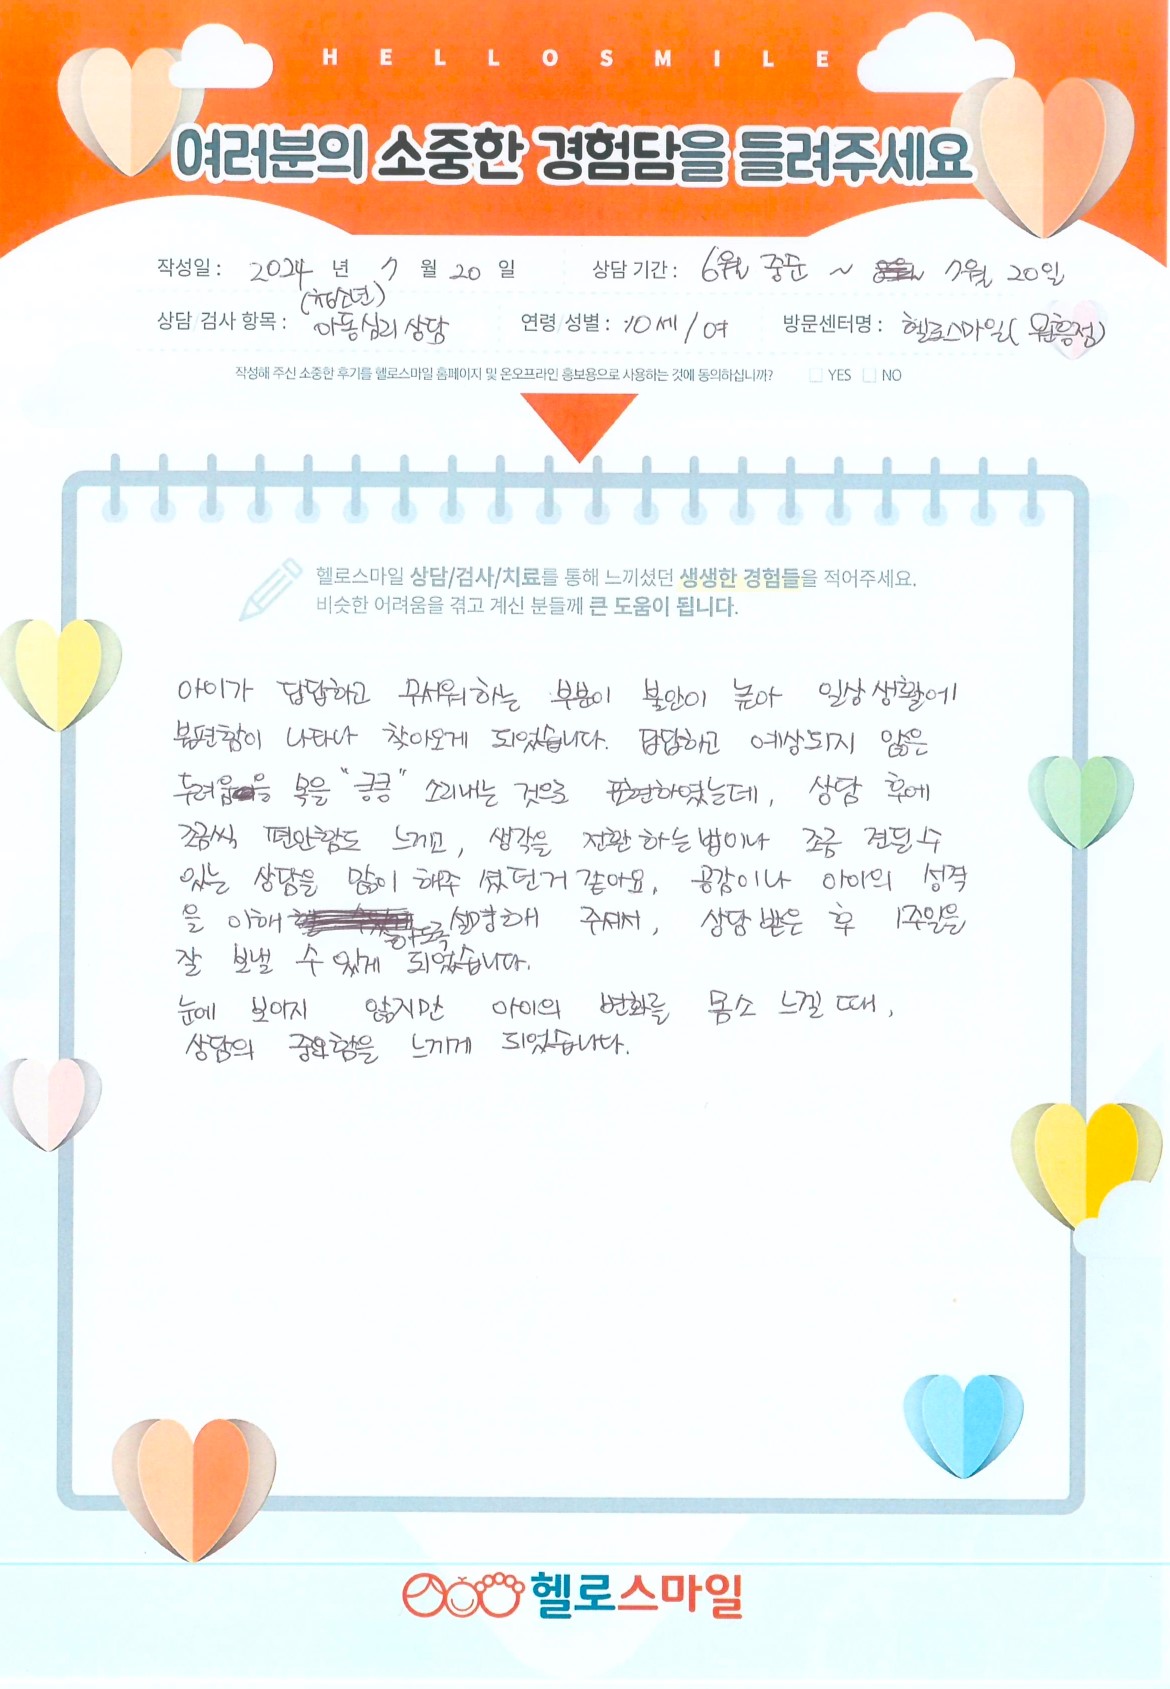 HELLOSMILE
여러분의 소중한 경험담을 들려주세요
작성일 : 2024 년 7 월 20 일 상담 기간 : 6월 중순 ~ 7월 20일
(청소년)
상담 검사 항목 : 아동심리상담 연령/성별 : 10세/여 방문센터명 : 헬로스마일( 원흥점)
작성해 주신 소중한 후기를 헬로스마일 홈페이지 및 온오프라인 홍보용으로 사용하는 것에 동의하십니까? YES NO
헬로스마일 상담/검사/치료를 통해 느끼셨던 생생한 경험들을 적어주세요.
비슷한 어려움을 겪고 계신 분들께 큰 도움이 됩니다.
아이가 답답하고 무서워하는 부분이 불안이 높아 일상생활에
불편함이 나타나 찾아오게 되었습니다. 답답하고 예상되지 않은
두려움을 목을 "킁킁" 소리내는 것으로 표현하였는데, 상담 후에
조금씩 편안함도 느끼고, 생각을 전환하는법이나 조금 견딜 수
있는 상담을 많이 해주셨던거 같아요. 공감이나 아이의 성격
을 이해 하도록 설명해 주셔서, 상담 받은 후 1주일을
잘 보낼 수 있게 되었습니다.
눈에 보이지 않지만 아이의 변화를 몸소 느낄 때,
상담의 중요함을 느끼게 되었습니다.
헬로스마일